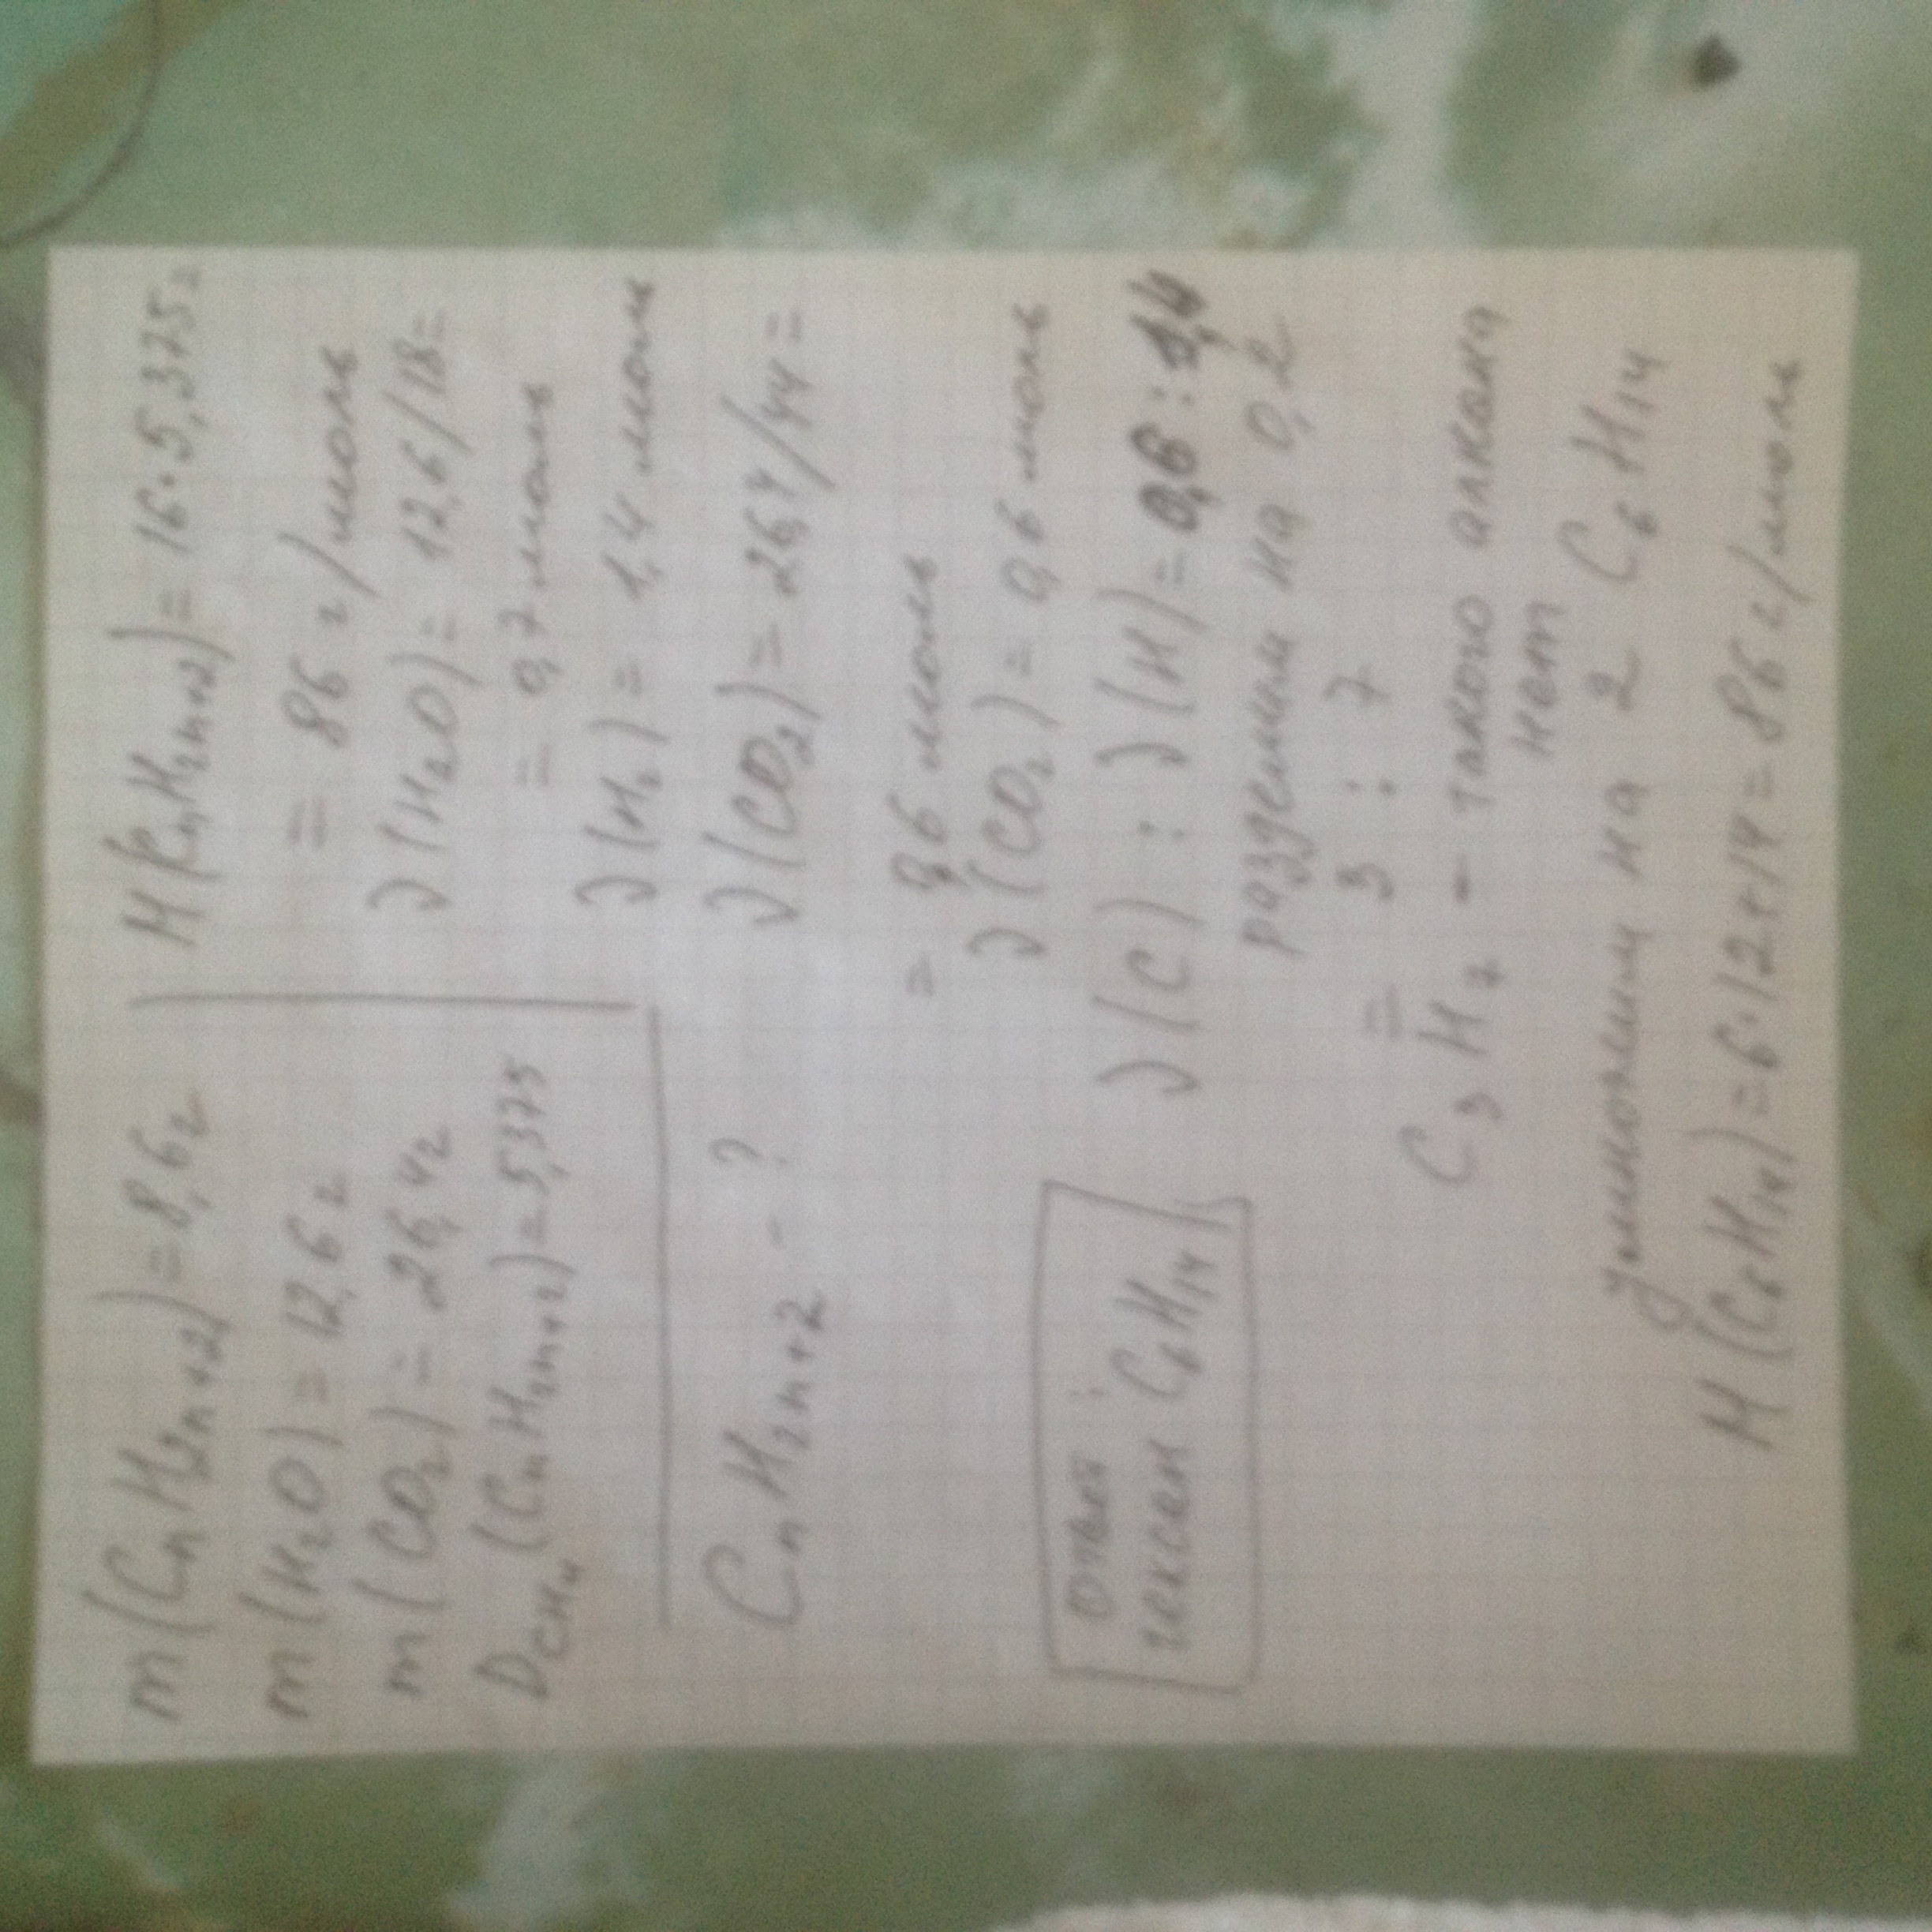 m(CnH2n+2)=8,6г
m(H2O)=12,6г
m(CO2)=26,4г
DCH4(CnH2n+2)=5,375
CnH2n+2 - ?
Ответ:
гексан C6H14
M(CnH2n+2)=16·5,375=
= 86 г/моль
ν(H2O)= 12,6/18=
= 0,7 моль
ν(H2)= 1,4 моль
ν(CO2)= 26,4/44=
= 0,6 моль
ν(CO2)= 0,6 моль
ν(C) : ν(H)= 0,6 : 1,4
разделим на 0,2
= 3 : 7
C3H7 - такого алкана
нет
умножим на 2 C6H14
M(C6H14)=6·12+14=86 г/моль